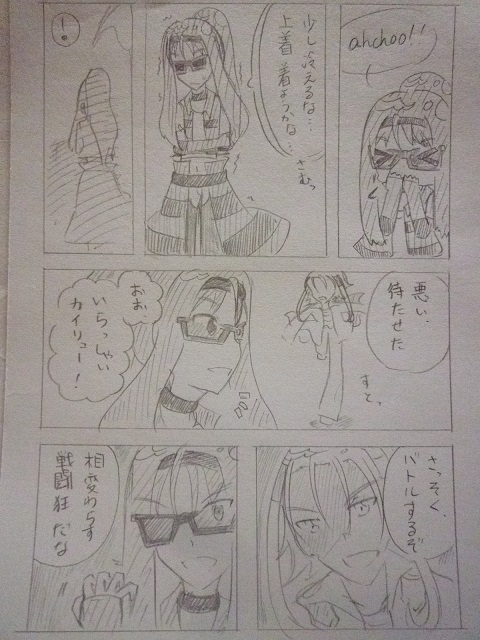 ahchoo!!
少し冷えるな…
上着着ようかな…
さむっ
!
悪い、
待たせた
すとっ
おお、
いらっしゃい
カイリュー!
さっそく、
バトルするぞ
相変わらず
戦闘狂だな